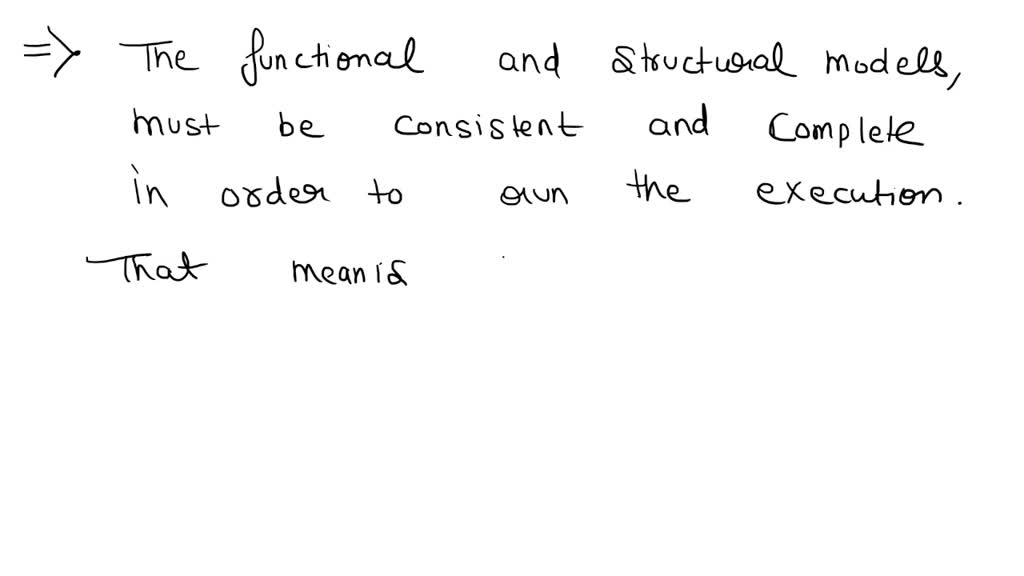 => The functional and structural models,
must be consistent and complete
in order to own the execution.
That meanis